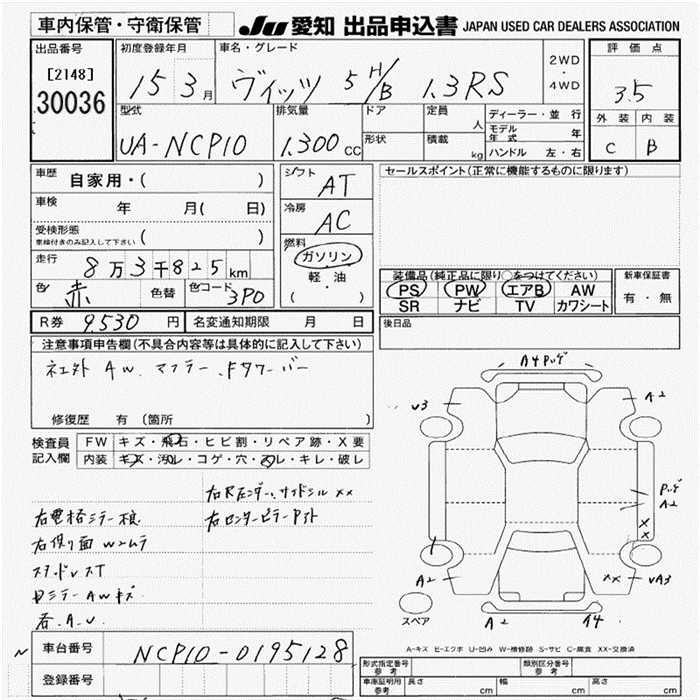 車内保管・守衛保管 JU 愛知 出品申込書 JAPAN USED CAR DEALERS ASSOCIATION
出品番号 初度登録年月 車名・グレード 評価点
[2148] 15 3月 ヴィッツ 5 H/B 1.3RS 2WD・4WD 3.5
30036
型式 排気量 ドア 定員 人 ディーラー・並行 外装 内装
UA-NCP10 1.300CC 形状 積載 kg モデル年式 年 C B
ハンドル 左・右
車歴 自家用・( ) シフト AT セールスポイント(正常に機能するものに限ります)
車検 年 月( 日) 冷房 AC
受検形態 ( )
車検付きのみ記入して下さい
燃料 ガソリン
走行 8万3千825km 軽・油 装備品(純正品に限り○をつけてください) 新車保証書
色 赤 色替 色コード 3P0 ( ) PS PW エアB AW 有・無
SR ナビ TV カワシート
R券 9,530円 名変通知期限 月 日 後日品
注意事項申告欄(不具合内容等は具体的に記入して下さい)
AW.マフラー.Fタワーバー
修復歴 有 (箇所
検査員 FW キズ・飛石・ヒビ割・リペア跡・X要
記入欄 内装 キズ・汚れ・コゲ・穴・スレ・キレ・破レ
A4
U3 A2
A2
XX
A2 XX
A2
スペア
A-キズ E-エクボ U-凹み W-補修跡 S-サビ C-腐食 XX-交換済
車台番号 NCP10-0195128
登録番号
形式指定番号 参考 類別区分番号 参考
車庫証明用 参考 長さ cm 幅 cm 高さ cm